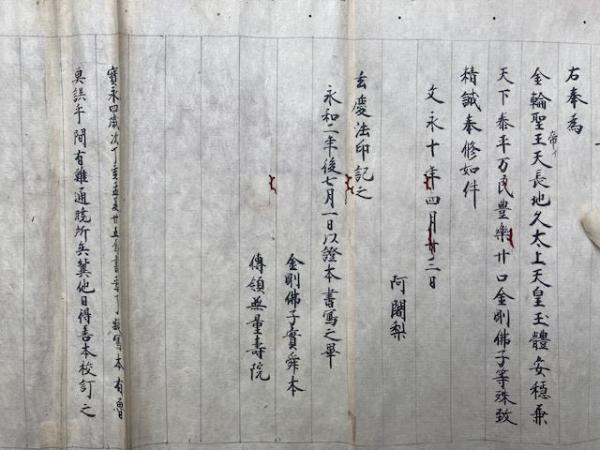 右奉為
金輪聖王天長地久太上天皇玉體安穩兼
帝イ
天下泰平万民豊樂廿口金剛佛子等殊致
精誠奉修如件
文永十年四月廿二日
阿闍梨
玄慶法印記之
永和二年後七月一日以證本書寫之畢
金剛佛子實舜本
傳領無量壽院
寳永四歳次丁亥孟夏廿五 書寫了 本有魯
魚誤乎間有難通曉所矣冀他日得善本校訂之